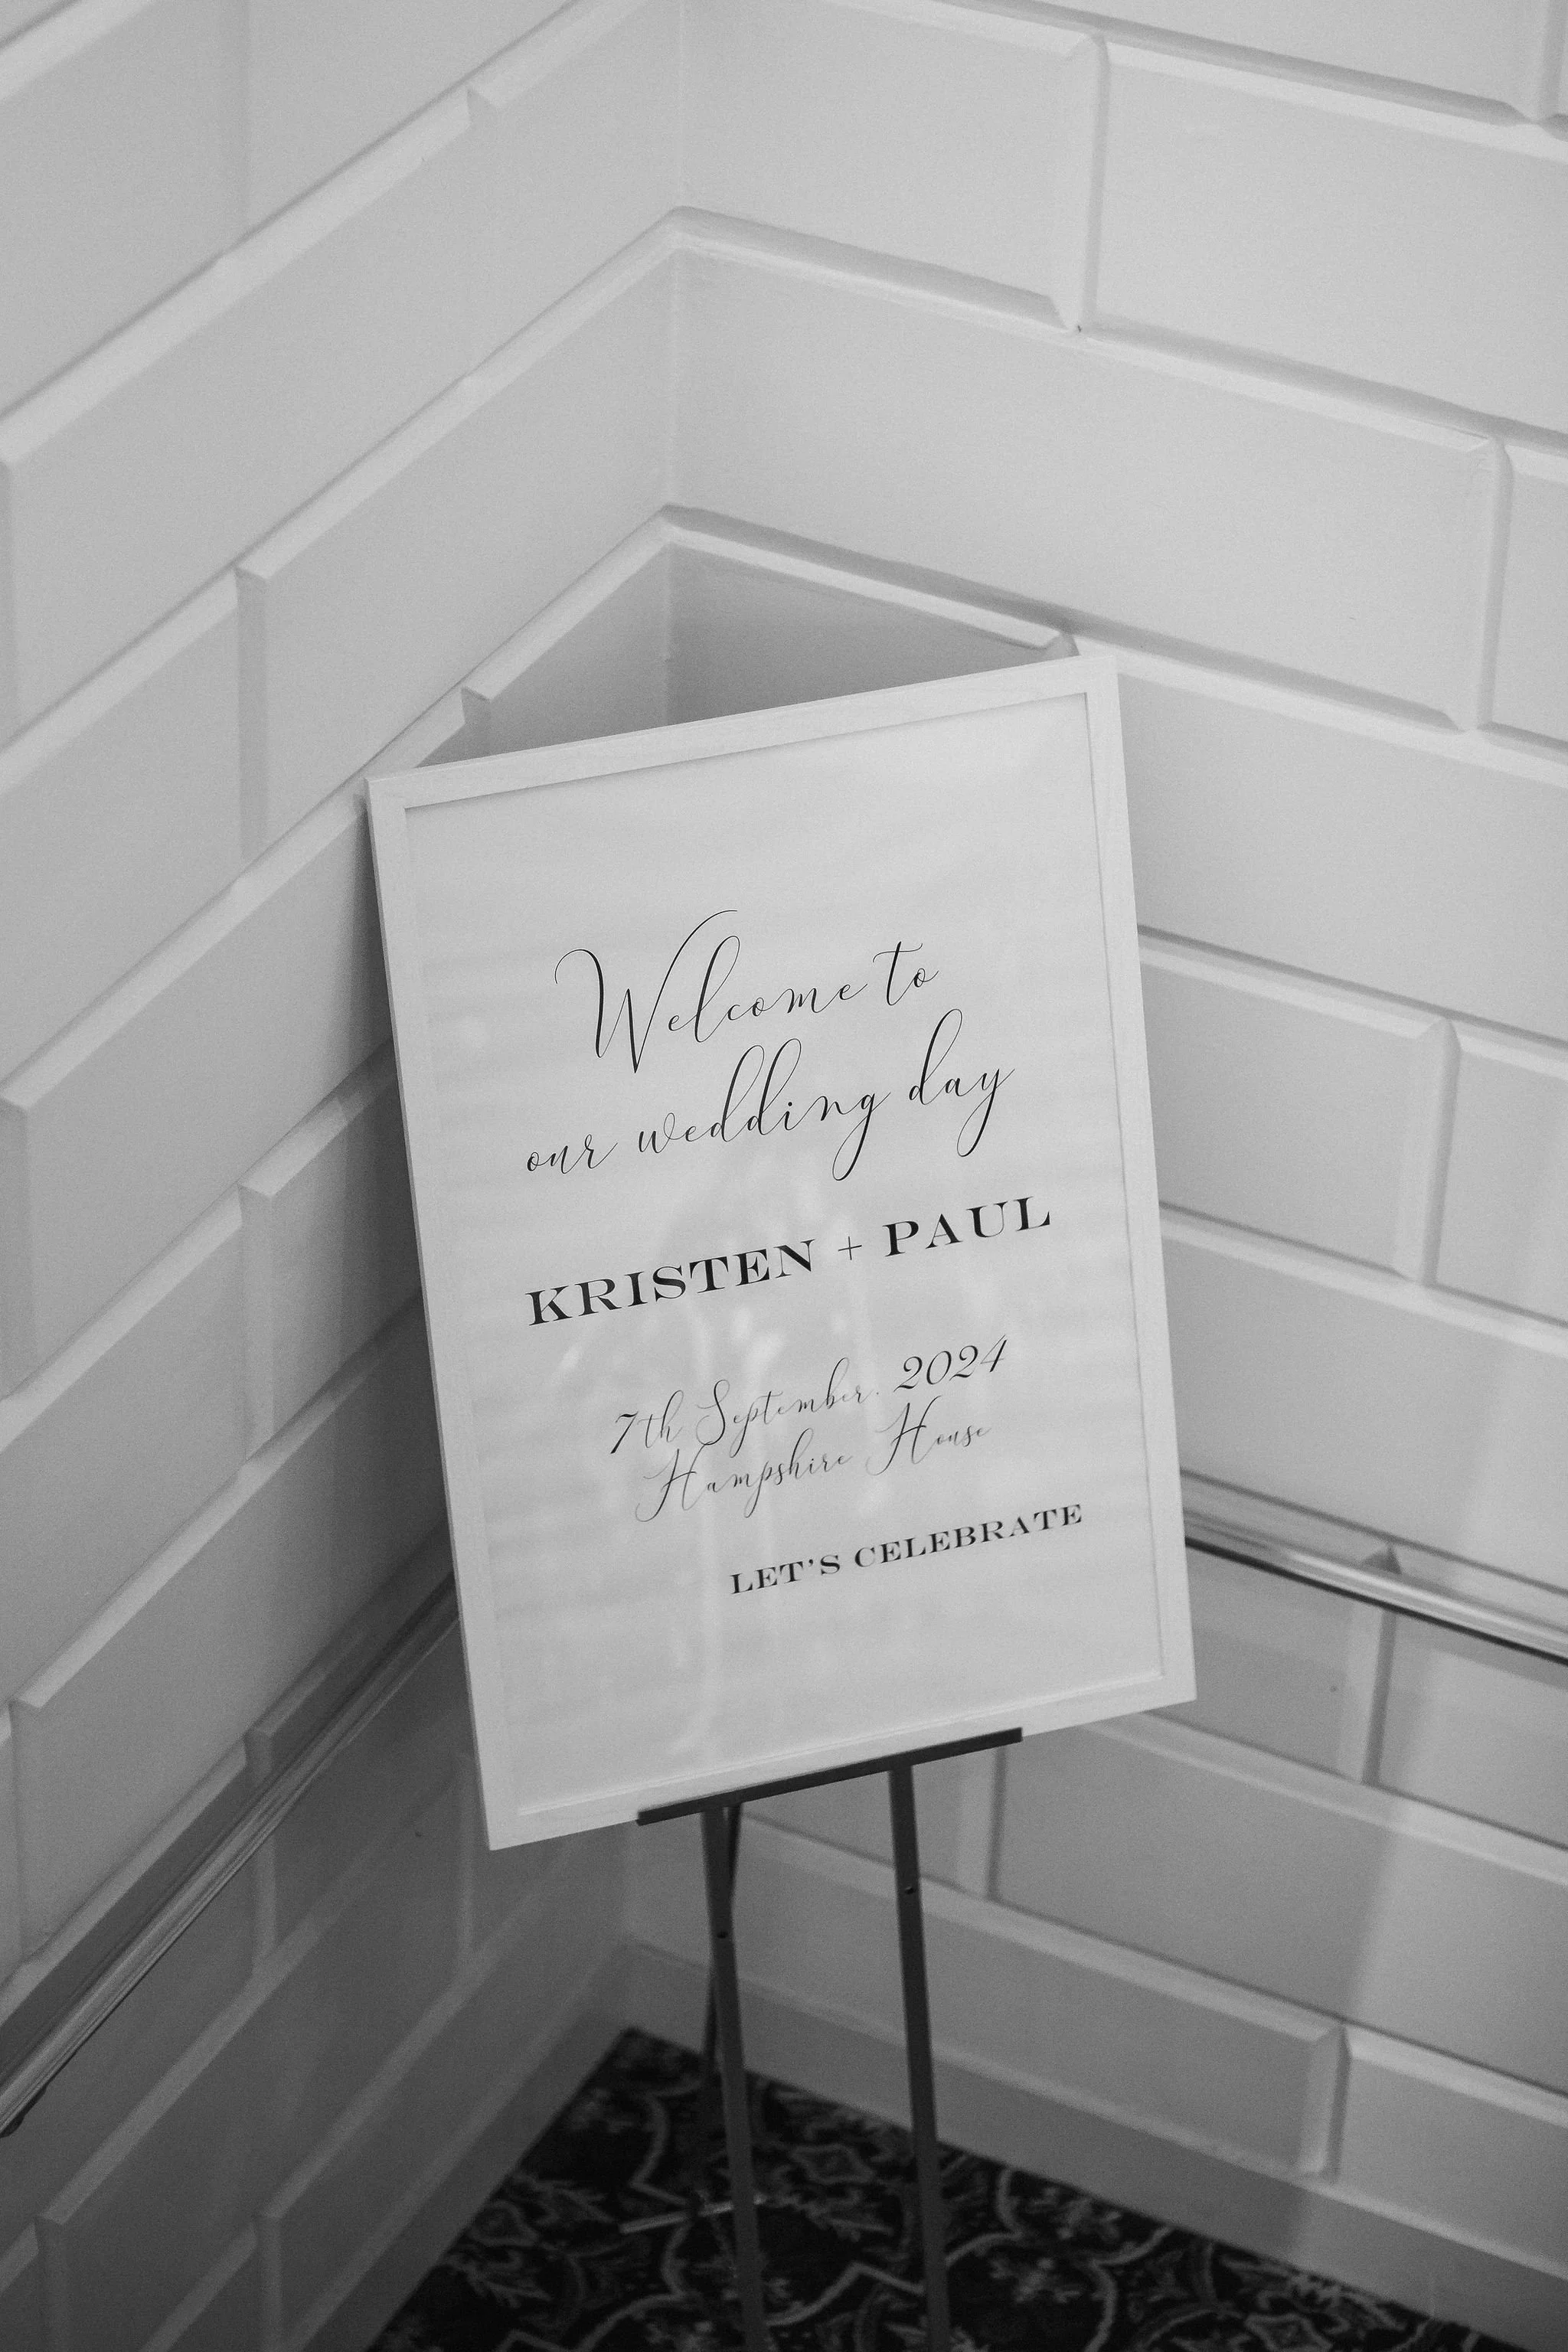 Welcome to
our wedding day
KRISTEN + PAUL
7th September. 2024
Hampshire House
LET'S CELEBRATE